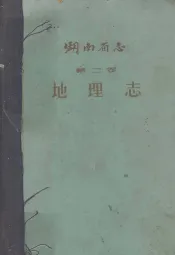 湖南省志
第二卷
地理志